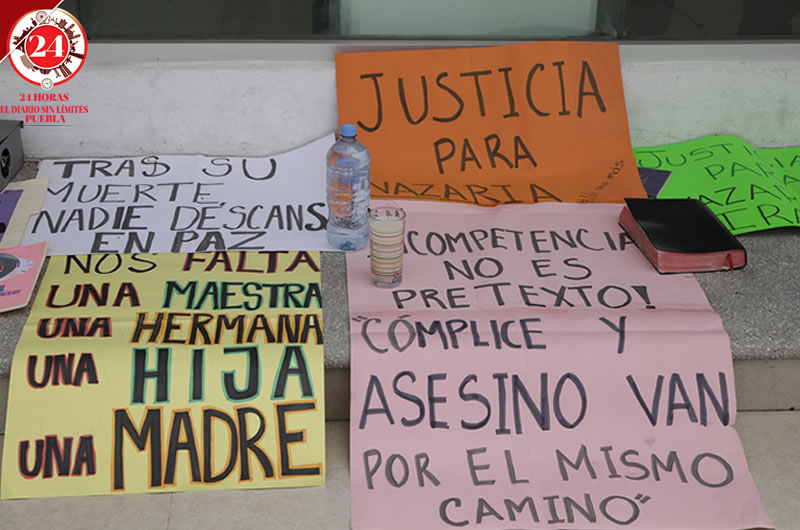 24
24 HORAS
EL DIARIO SIN LÍMITES
PUEBLA
JUSTICIA
PARA
NAZARIA
#NI UNA MÁS
TRAS SU
MUERTE,
NADIE DESCANS
EN PAZ
NOS FALTA
UNA MAESTRA
UNA HERMANA
UNA HIJA
UNA MADRE
INCOMPETENCIA
NO ES
PRETEXTO!
"CÓMPLICE Y
ASESINO VAN
POR EL MISMO
CAMINO"